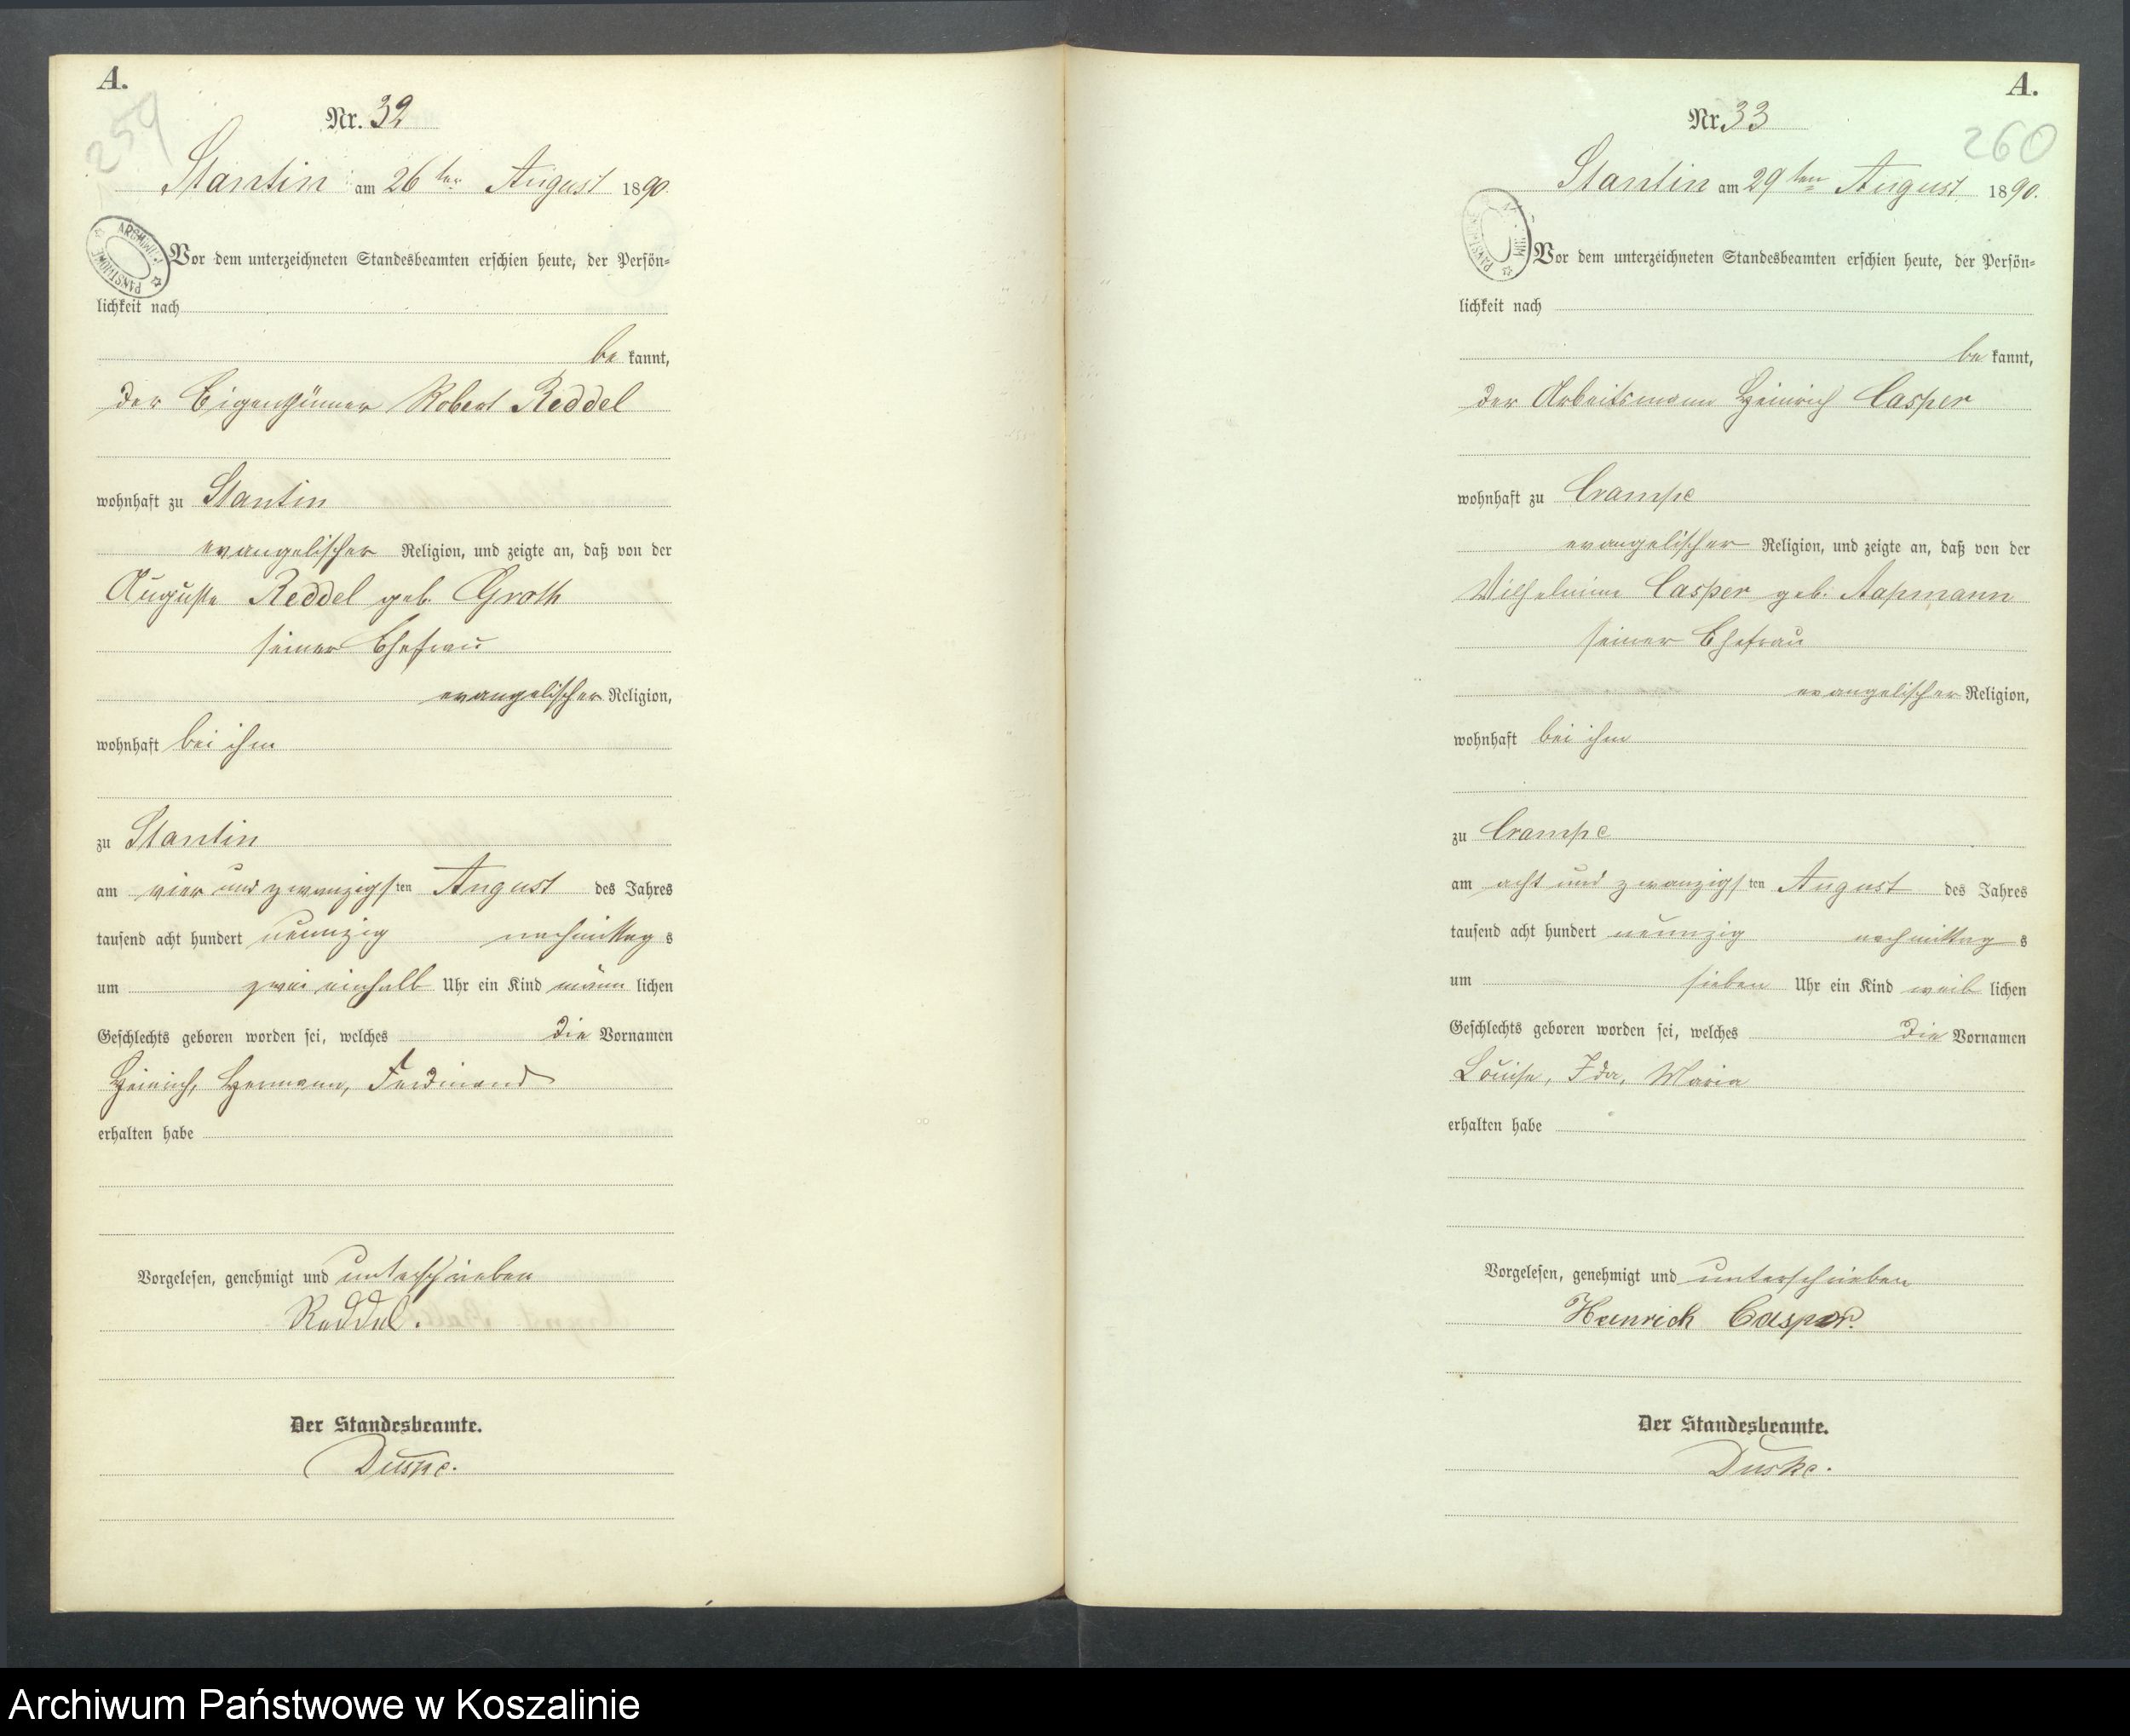 A.
259
Nr. 32
Stantin am 26ten August 1890.
ARCHIWUM PAŃSTWOWE
Vor dem unterzeichneten Standesbeamten erschien heute, der Persön-
lichkeit nach
be kannt,
der Eigenthümer Robert Reddel
wohnhaft zu Stantin
evangelischer Religion, und zeigte an, daß von der
Auguste Reddel geb. Groth
seiner Ehefrau
evangelischer Religion,
wohnhaft bei ihm
zu Stantin
am vier und zwanzigsten August des Jahres
tausend acht hundert neunzig nachmittags
um zwei einhalb Uhr ein Kind männ lichen
Geschlechts geboren worden sei, welches die Vornamen
Heinrich, Hermann, Ferdinand
erhalten habe
Vorgelesen, genehmigt und unterschrieben
Reddel.
Der Standesbeamte.
Duske.
A.
260
Nr. 33
Stantin am 29ten August 1890.
Vor dem unterzeichneten Standesbeamten erschien heute, der Persön-
lichkeit nach
be kannt,
der Arbeitsmann Heinrich Casper
wohnhaft zu Crampe
evangelischer Religion, und zeigte an, daß von der
Wilhelmine Casper geb.
seiner Ehefrau
evangelischer Religion,
wohnhaft bei ihm
zu Crampe
am acht und zwanzigsten August des Jahres
tausend acht hundert neunzig nachmittags
um sieben Uhr ein Kind weib lichen
Geschlechts geboren worden sei, welches die Vornamen
Louise, Ida, Maria
erhalten habe
Vorgelesen, genehmigt und unterschrieben
Heinrich Casper.
Der Standesbeamte.
Duske.
Archiwum Państwowe w Koszalinie